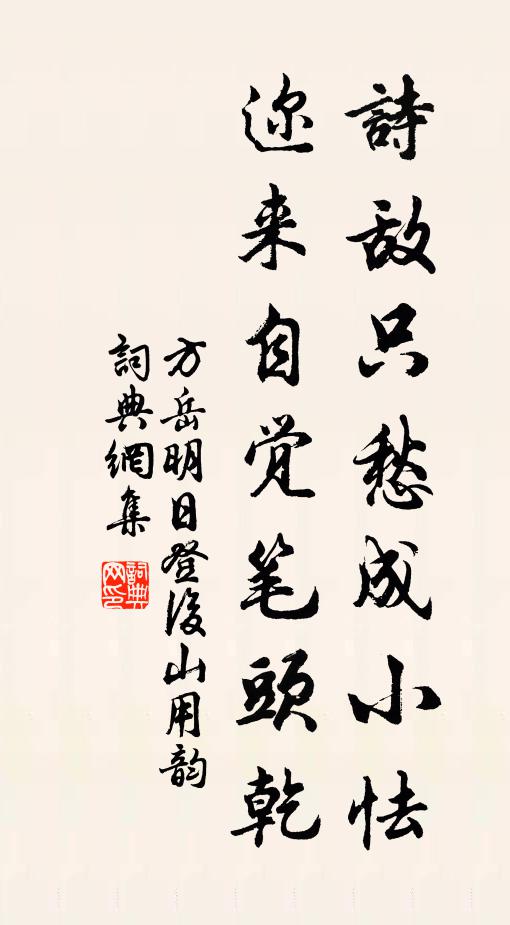 詩敌只愁成小怯
迩来自觉笔頭乾
方岳明日登後山用韵
詞典網集
詞典
网印